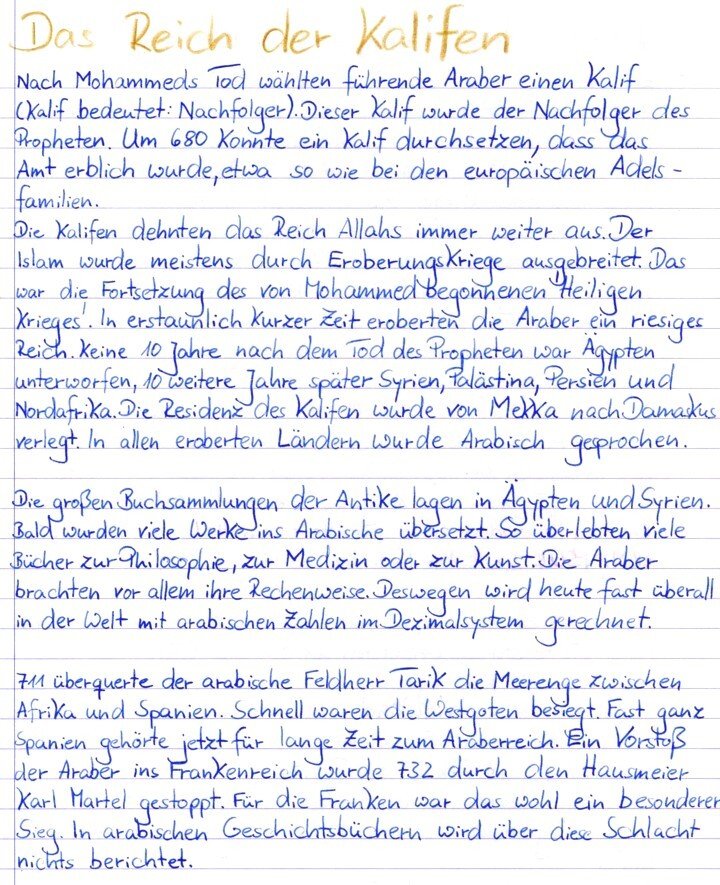 Das Reich der Kalifen
Nach Mohammeds Tod wählten führende Araber einen Kalif
(Kalif bedeutet: Nachfolger). Dieser Kalif wurde der Nachfolger des
Propheten. Um 680 konnte ein Kalif durchsetzen, dass das
Amt erblich wurde, etwa so wie bei den europäischen Adels-
familien.
Die Kalifen dehnten das Reich Allahs immer weiter aus. Der
Islam wurde meistens durch Eroberungskriege ausgebreitet. Das
war die Fortsetzung des von Mohammed begonnenen "Heiligen
Krieges". In erstaunlich kurzer Zeit eroberten die Araber ein riesiges
Reich. Keine 10 Jahre nach dem Tod des Propheten war Ägypten
unterworfen, 10 weitere Jahre später Syrien, Palästina, Persien und
Nordafrika. Die Residenz des Kalifen wurde von Mekka nach Damaskus
verlegt. In allen eroberten Ländern wurde Arabisch gesprochen.
Die großen Buchsammlungen der Antike lagen in Ägypten und Syrien.
Bald wurden viele Werke ins Arabische übersetzt. So überlebten viele
Bücher zur Philosophie, zur Medizin oder zur Kunst. Die Araber
brachten vor allem ihre Rechenweise. Deswegen wird heute fast überall
in der Welt mit arabischen Zahlen im Dezimalsystem gerechnet.
711 überquerte der arabische Feldherr Tarik die Meerenge zwischen
Afrika und Spanien. Schnell waren die Westgoten besiegt. Fast ganz
Spanien gehörte jetzt für lange Zeit zum Araberreich. Ein Vorstoß
der Araber ins Frankenreich wurde 732 durch den Hausmeier
Karl Martel gestoppt. Für die Franken war das wohl ein besonderer
Sieg. In arabischen Geschichtsbüchern wird über diese Schlacht
nichts berichtet.